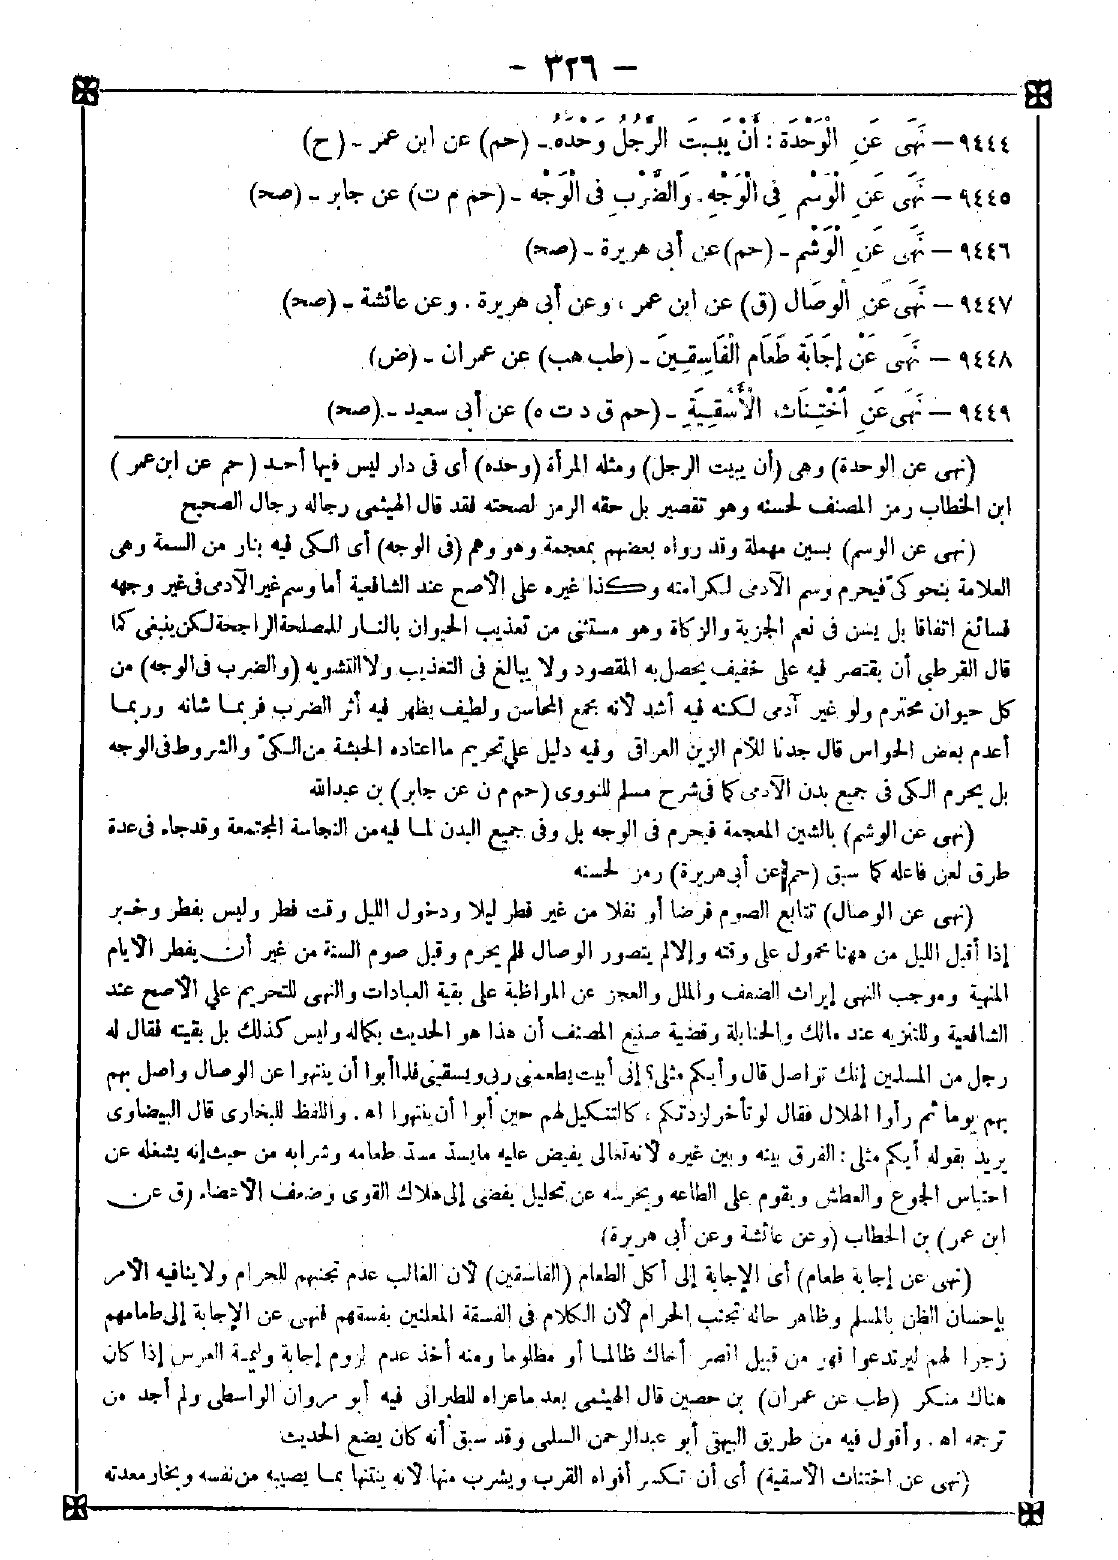 - ٣٢٦ -
٩٤٤٤ — نَهَى عَنِ الْوَحْدَةِ: أَنْ يَبِيتَ الرَّجُلُ وَحْدَهُ - (حم) عن ابن عمر - (ح)
٩٤٤٥ — نَهَى عَنِ الْوَسْمِ فِى الْوَجْهِ، وَالضَّرْبِ فِى الْوَجْهِ - (حم م ت) عن جابر - (صح)
٩٤٤٦ — نَهَى عَنِ الْوَشْمِ - (حم) عن أبى هريرة - (صح)
٩٤٤٧ — نَهَى عَنِ الْوِصَالِ (ق) عن ابن عمر، وعن أبى هريرة، وعن عائشة - (صح)
٩٤٤٨ — نَهَى عَنْ إِجَابَةِ طَعَامِ الْفَاسِقِينَ - (طب هب) عن عمران - (ض)
٩٤٤٩ — نَهَى عَنِ اخْتِنَاثِ الْأَسْقِيَةِ - (حم ق د ت ه) عن أبى سعيد - (صح)
(نهى عن الوحدة) وهى (أن يبيت الرجل) ومثله المرأة (وحده) أى فى دار ليس فيها أحد (حم عن ابن عمر)
ابن الخطاب رمز المصنف لحسنه وهو تقصير بل حقه الرمز لصحته لقد قال الهيثمى رجاله رجال الصحيح
(نهى عن الوسم) بسين مهملة وقد رواه بعضهم بمعجمة وهو وهم (فى الوجه) أى الكى فيه بنار من السمة وهى
العلامة بنحو كىّ فيحرم وسم الآدمى لكرامته وكذا غيره على الأصح عند الشافعية أما وسم غير الآدمى فى غير وجهه
فسائغ اتفاقا بل يسن فى نعم الجزية والزكاة وهو مستثنى من تعذيب الحيوان بالنار للمصلحة الراجحة لكن ينبغى كما
قال القرطبى أن يقتصر فيه على خفيف يحصل به المقصود ولا يبالغ فى التعذيب ولا التشويه (والضرب فى الوجه) من
كل حيوان محترم ولو غير آدمى لكنه فيه أشد لأنه مجمع المحاسن ولطيف يظهر فيه أثر الضرب فربما شانه وربما
أعدم بعض الحواس قال جدنا للأم الزين العراقى وفيه دليل على تحريم ما اعتاده الحبشة من الكىّ والشروط فى الوجه
بل يحرم الكى فى جميع بدن الآدمى كما فى شرح مسلم للنووى (حم م ن عن جابر) بن عبدالله
(نهى عن الوشم) بالشين المعجمة فيحرم فى الوجه بل وفى جميع البدن لما فيه من النجاسة المجتمعة وقد جاء فى عدة
طرق لعن فاعله كما سبق (حم عن أبى هريرة) رمز لحسنه
(نهى عن الوصال) تتابع الصوم فرضا أو نفلا من غير فطر ليلا ودخول الليل وقت فطر وليس بفطر وخبر
إذا أقبل الليل من ههنا محمول على وقته وإلا لم يتصور الوصال فلم يحرم وقبل صوم السنة من غير أن يفطر الأيام
المنهية وموجب النهى إيراث الضعف والملل والعجز عن المواظبة على بقية العبادات والنهى للتحريم على الأصح عند
الشافعية وللتنزيه عند مالك والحنابلة وقضية صنيع المصنف أن هذا هو الحديث بكماله وليس كذلك بل بقيته فقال له
رجل من المسلمين إنك تواصل قال وأيكم مثلى؟ إنى أبيت يطعمنى ربى ويسقينى فلما أبوا أن ينتهوا عن الوصال واصل بهم
بهم يوما ثم رأوا الهلال فقال لو تأخر لزدتكم، كالتنكيل لهم حين أبوا أن ينتهوا اه. واللفظ للبخارى قال البيضاوى
يريد بقوله أيكم مثلى: الفرق بينه وبين غيره لأنه تعالى يفيض عليه ما يسدّ مسدّ طعامه وشرابه من حيث إنه يشغله عن
احتباس الجوع والعطش ويقوم على الطاعة ويحرسه عن تحليل يفضى إلى هلاك القوى وضعف الأعضاء (ق عن
ابن عمر) بن الخطاب (وعن عائشة وعن أبى هريرة)
(نهى عن إجابة طعام) أى الإجابة إلى أكل الطعام (الفاسقين) لأن الغالب عدم تجنبهم للحرام ولا ينافيه الأمر
بإحسان الظن بالمسلم وظاهر حاله تجنب الحرام لأن الكلام فى الفسقة المعلنين بفسقهم فنهى عن الإجابة إلى طعامهم
زجرا لهم ليرتدعوا فهو من قبيل انصر أخاك ظالما أو مظلوما ومنه أخذ عدم لزوم إجابة وليمة العرس إذا كان
هناك منكر (طب عن عمران) بن حصين قال الهيثمى بعد ما عزاه للطبرانى فيه أبو مروان الواسطى ولم أجد من
ترجمه اه. وأقول فيه من طريق البيهقى أبو عبدالرحمن السلمى وقد سبق أنه كان يضع الحديث
(نهى عن اختناث الأسقية) أى أن تكسر أفواه القرب ويشرب منها لأنه ينتنها بما يصيبه من نفسه وبخار معدته